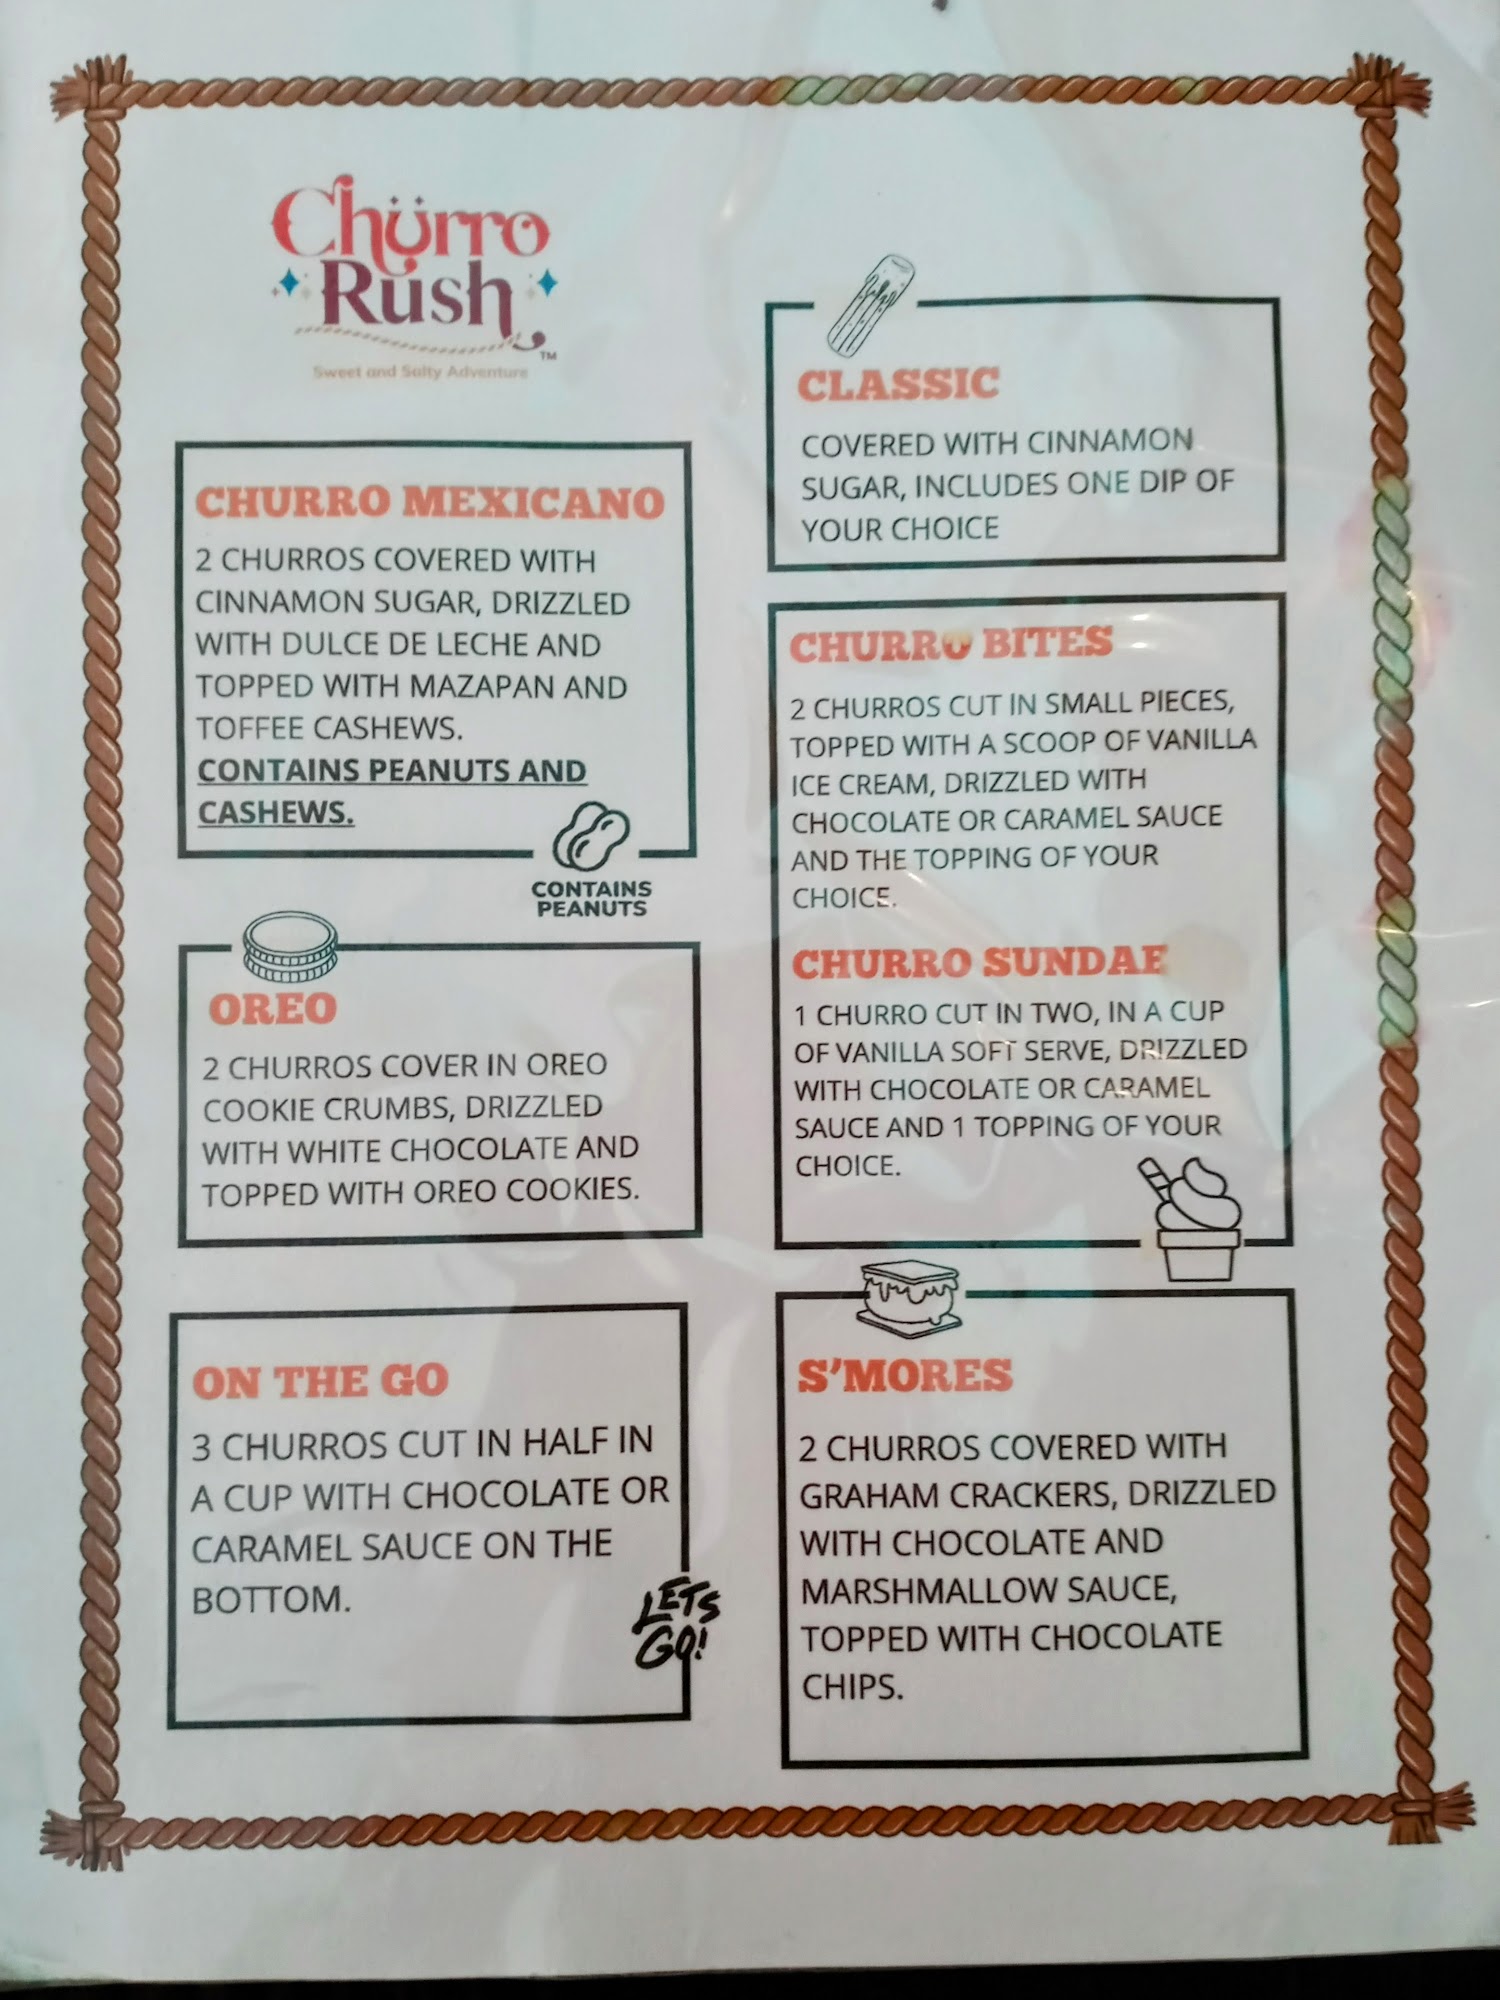 Chürro
Rush
TM
Sweet and Salty Adventure
CHURRO MEXICANO
2 CHURROS COVERED WITH
CINNAMON SUGAR, DRIZZLED
WITH DULCE DE LECHE AND
TOPPED WITH MAZAPAN AND
TOFFEE CASHEWS.
CONTAINS PEANUTS AND
CASHEWS.
CONTAINS
PEANUTS
OREO
2 CHURROS COVER IN OREO
COOKIE CRUMBS, DRIZZLED
WITH WHITE CHOCOLATE AND
TOPPED WITH OREO COOKIES.
ON THE GO
3 CHURROS CUT IN HALF IN
A CUP WITH CHOCOLATE OR
CARAMEL SAUCE ON THE
BOTTOM.
LETS
GO!
CLASSIC
COVERED WITH CINNAMON
SUGAR, INCLUDES ONE DIP OF
YOUR CHOICE
CHURRO BITES
2 CHURROS CUT IN SMALL PIECES,
TOPPED WITH A SCOOP OF VANILLA
ICE CREAM, DRIZZLED WITH
CHOCOLATE OR CARAMEL SAUCE
AND THE TOPPING OF YOUR
CHOICE.
CHURRO SUNDAE
1 CHURRO CUT IN TWO, IN A CUP
OF VANILLA SOFT SERVE, DRIZZLED
WITH CHOCOLATE OR CARAMEL
SAUCE AND 1 TOPPING OF YOUR
CHOICE.
S'MORES
2 CHURROS COVERED WITH
GRAHAM CRACKERS, DRIZZLED
WITH CHOCOLATE AND
MARSHMALLOW SAUCE,
TOPPED WITH CHOCOLATE
CHIPS.